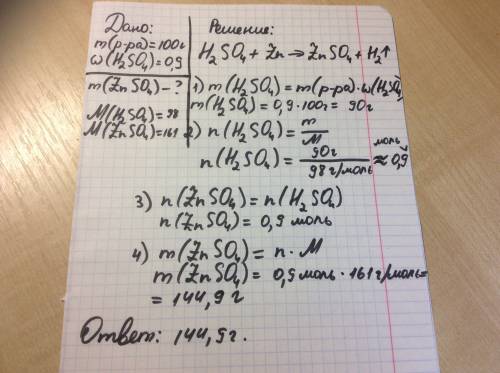 Дано:
m(р-ра)=100г
ω(H₂SO₄)=0,9
m(ZnSO₄)-?
M(H₂SO₄)=98
M(ZnSO₄)=161
Решение:
H₂SO₄+Zn→ZnSO₄+H₂↑
1) m(H₂SO₄)=m(р-ра)·ω(H₂SO₄)
m(H₂SO₄)=0,9·100г=90г
2) n(H₂SO₄)=m/M
n(H₂SO₄)=90г/98г/моль≈0,9 моль
3) n(ZnSO₄)=n(H₂SO₄)
n(ZnSO₄)=0,9 моль
4) m(ZnSO₄)=n·M
m(ZnSO₄)=0,9моль·161г/моль=
=144,9г
Ответ: 144,9г.